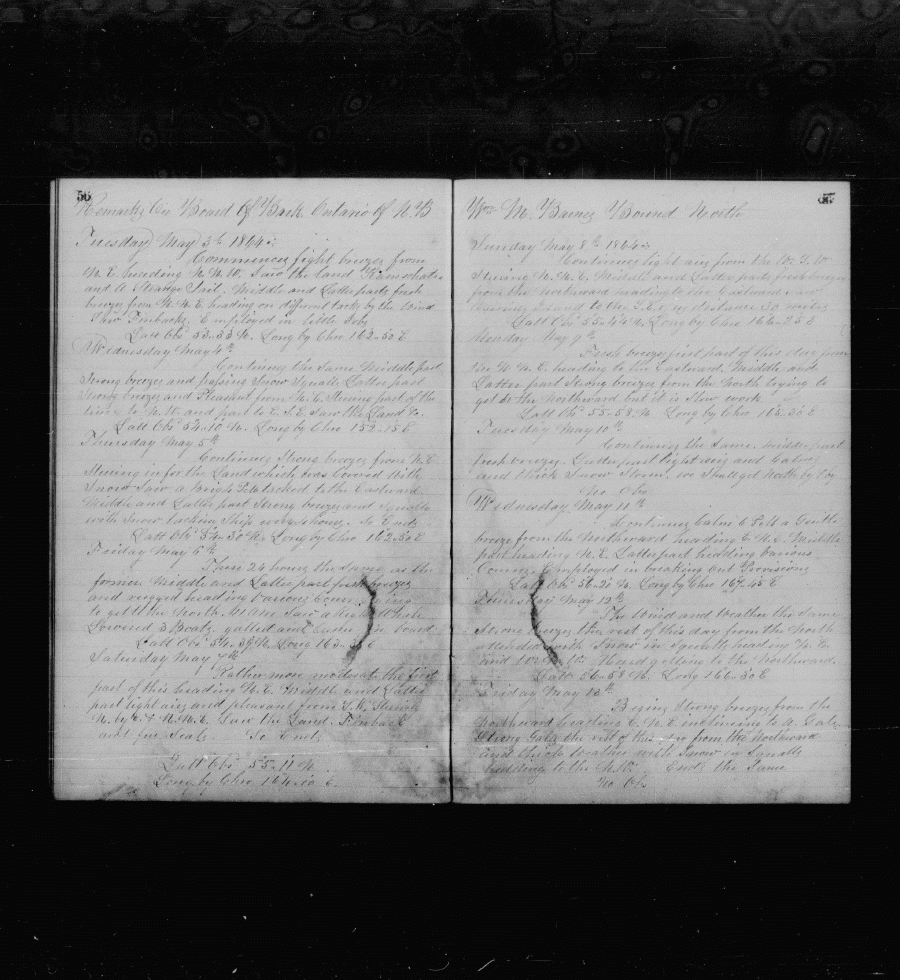 56
Remarks On Board Of Bark Ontario Of N.B
Tuesday May 3th 1864
Commences light breezes from
N. E. heading N. N. W. Saw the land
and A Strange Sail. Middle and Latter parts fresh
breezes from N. N. E. heading on different tacks by the Wind
Saw Finbacks. Employed in little Jobs
Latt Obs 53-33 N. Long by Chro 162-50 E
Wednesday May 4th
Continues the Same Middle part
Strong breezes and passing Snow Squalls Latter part
Strong breezes and Pleasant from N. E. Steering part of the
time to N. W. and part to E. S. E. Saw the Land &c.
Latt Obs 54-10 N. Long by Chro 152-15 E
Thursday May 5th
Continues Strong breezes from N. E.
Steering in for the Land which was Covered With
Snow Saw a brig tacked to the Eastward
Middle and Latter part Strong breezes and Squalls
with Snow tacking Ship So Ends
Latt Obs 54-30 N. Long by Chro 162-50 E
Friday May 6th
These 24 hours the Same as the
former Middle and Latter part fresh breezes
and rugged heading Various
to get to the North. Saw a
Lowered 3 Boats, gallied and on board
Latt Obs 54-39 N. Long 163-
Saturday May 7th
Rather more moderate the first
part of this heading N. E. Middle and Latter
part light airs and pleasant from S. W. Steering
N. by E. & N. N. E. Saw the Land. Finback
and fur Seals. So Ends
Latt Obs 55-11 N.
Long by Chro 164-00 E.
57
Wm. M. Barnes Bound North
Sunday May 8th 1864
Continues light airs from the W. S. W.
Steering N. N. E. Middle and Latter parts fresh breezes
from the Northward heading to the Eastward Saw
Island to the S. E. distance 30 miles
Latt Obs 55-44 N. Long by Chro 166-25 E
Monday May 9th
Fresh breezes first part of this day from
the N. N. E. heading to the Eastward. Middle and
Latter part Strong breezes from the North trying to
get to the Northward but it is Slow work
Latt Obs 55-58 N. Long by Chro 165-35 E
Tuesday May 10th
Continues the Same. Middle part
fresh breezes. Latter part light airs and Calms
and thick Snow Storm. we Shall get North by &
No Obs
Wednesday May 11th
Continues Calm 6 P.M. a Gentle
breeze from the Northward heading E. N. E. Middle
part heading N. E. Latter part heading Various
Courses Employed in breaking Out Provisions
Latt Obs 56-21 N. Long by Chro 167-45 E
Thursday May 12th
The Wind and Weather the Same
Strong breezes the rest of this day from the North
attended with Snow in Squalls heading N. E.
and to the W. Heard guns to the Northward.
Latt 56-58 N. Long 166-30 E
Friday May 13th
Begins Strong breezes from the
Northward heading E. N. E. inclining to A Gale.
Strong Gale the rest of this day from the Northward
and thick weather with Snow in Squalls
heading to the N. W. Ends the Same
No Obs